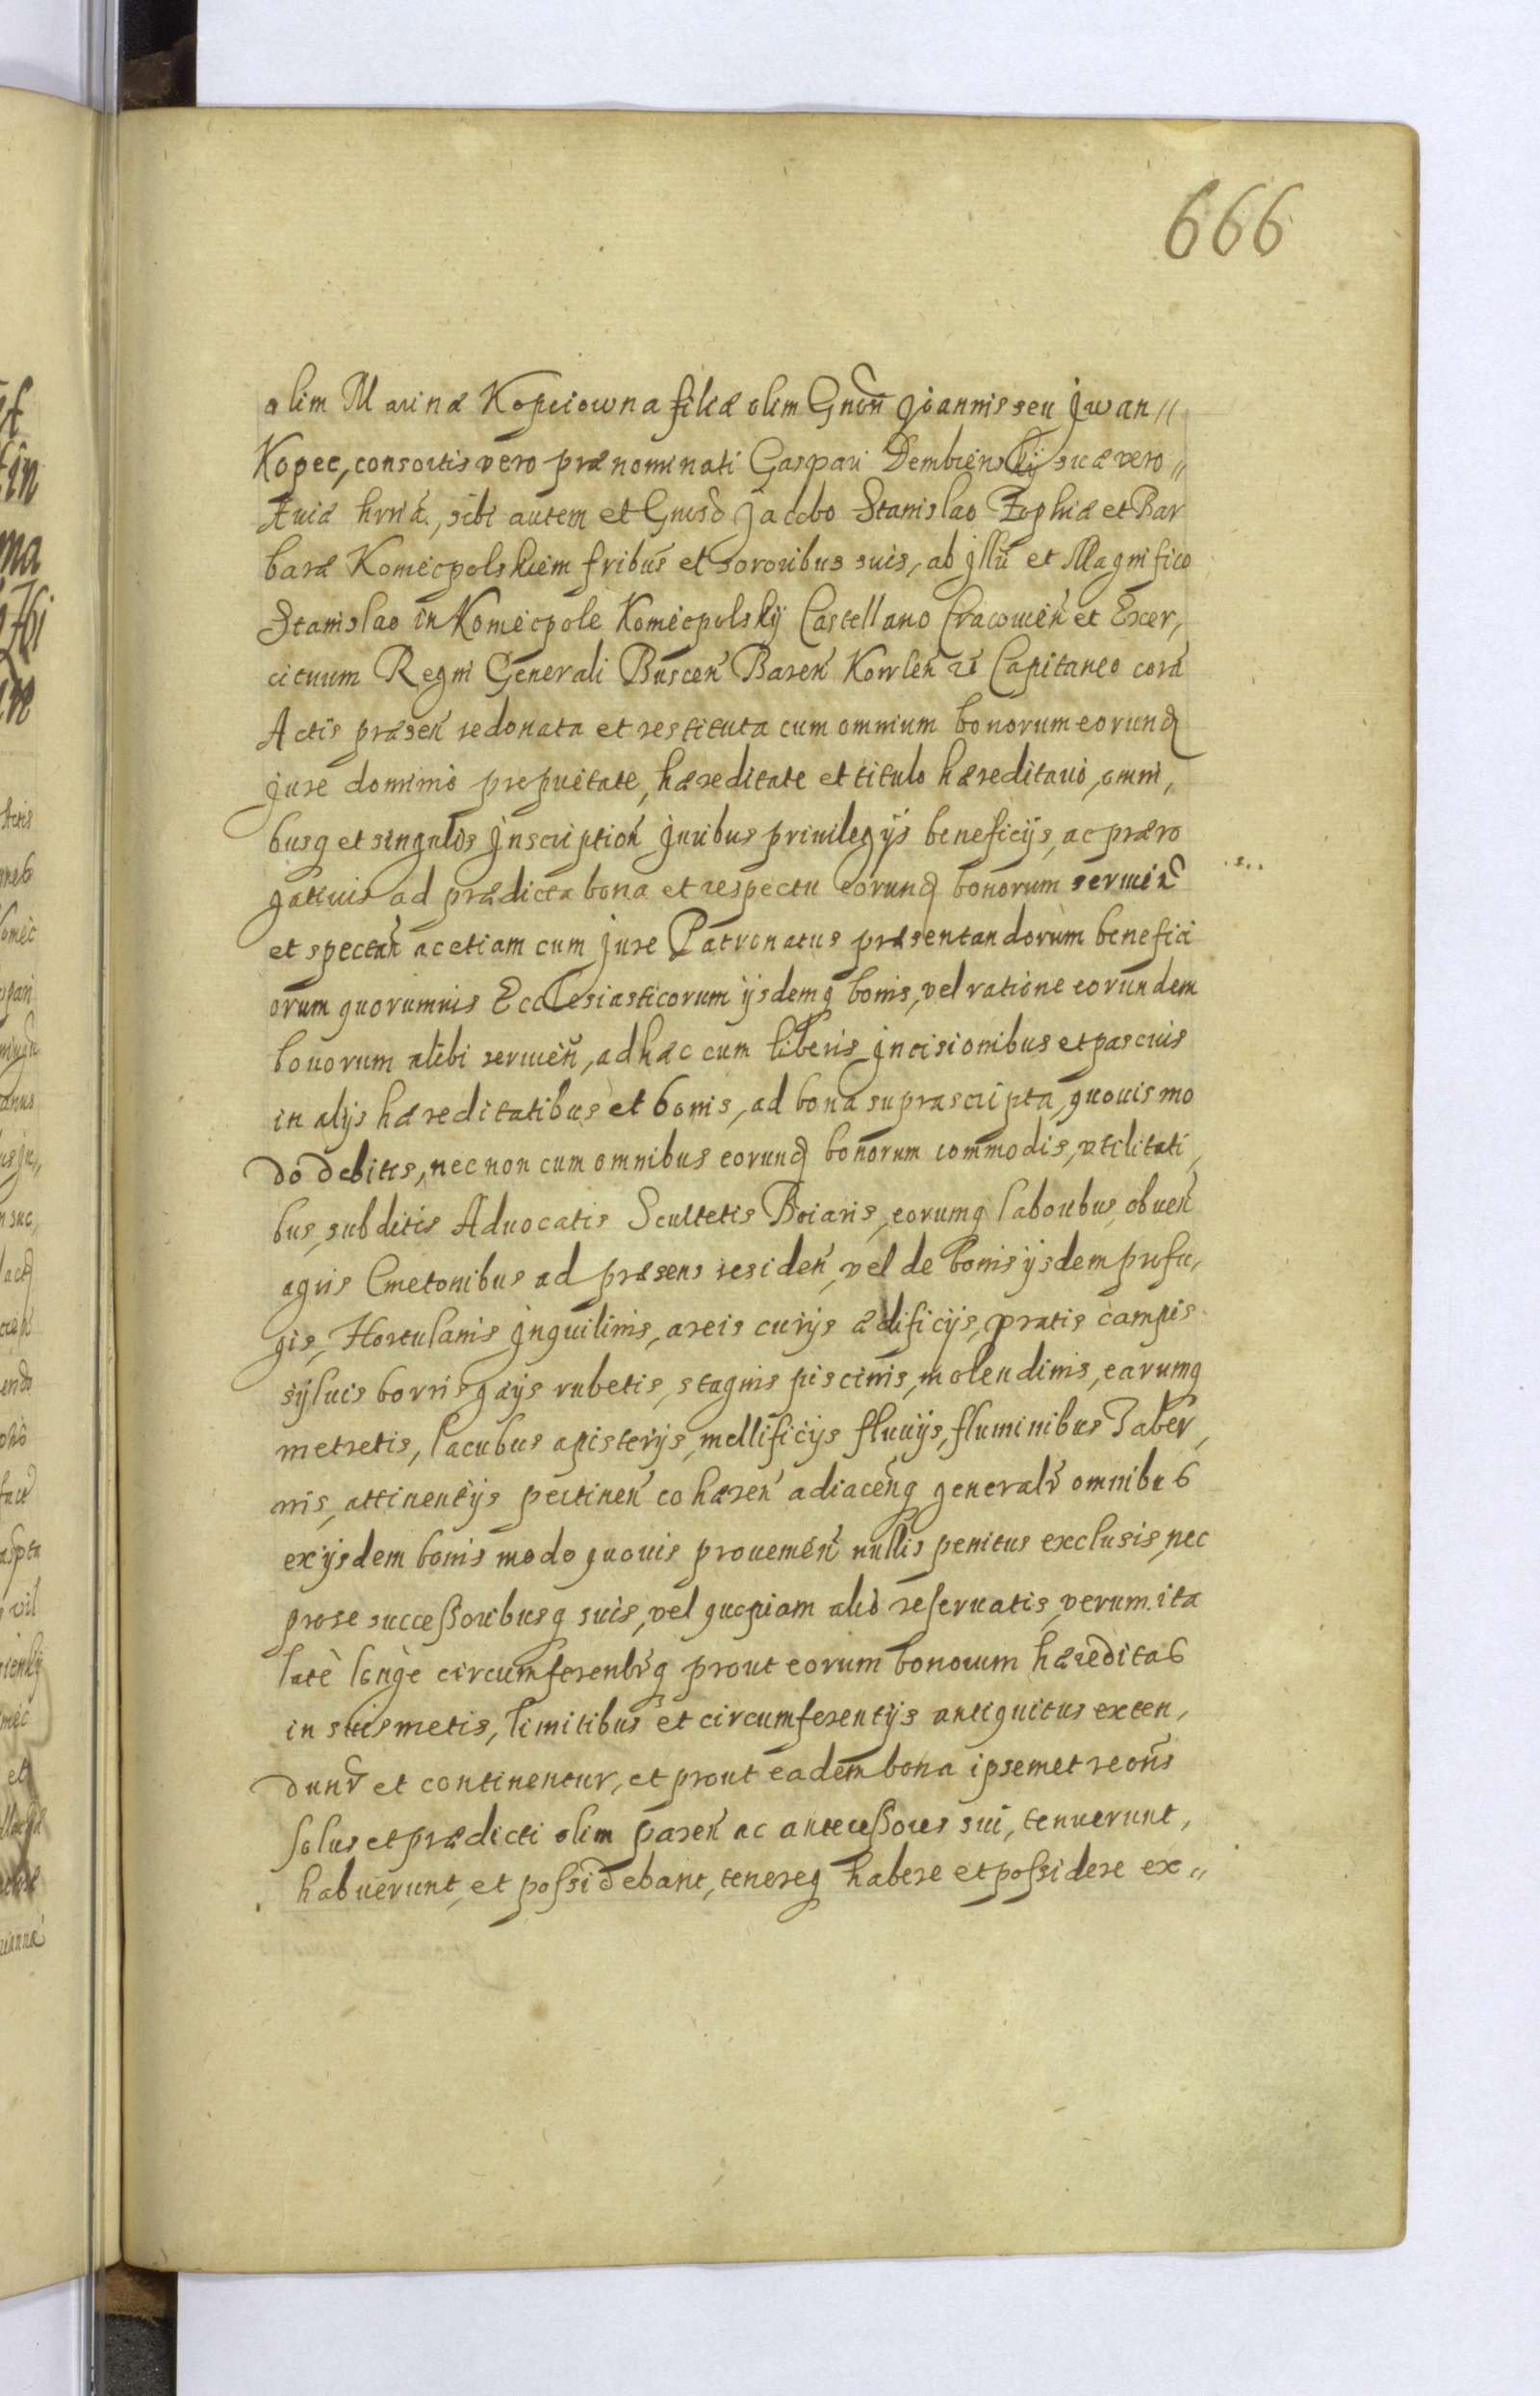 666
olim Marinæ Kopciowna filiæ olim Gnōn Joannis seu Jwan //
Kopec, consortis vero prænominati Gaspari Dembiensky suæ vero //
Auiæ hrnā, sibi autem et Gnisd Jacobo Stanislao Zophiæ et Bar
baræ Koniecpolskiem fribus et sororibus suis, ab Jllu et Magnifico
Stanislao in Koniecpole Koniecpolskÿ Castellano Cracouień et Exer,
cituum Regni Generali Busceń Bareń Kowleń Capitaneo corā
Actis præseń redonata et restituta cum omnium bonorum eorunđ
jure dominio proprietate, hæreditate et titulo hæreditario, omni,
busq et singulis Jnscription Juribus priuilegÿs beneficÿs, ac præro
gatiuis ad prædicta bona et respectu eorunđ bonorum seruień
et spectań ac etiam cum jure Patronatus præsentandorum benefici
orum quorumuis Ecclesiasticorum ÿsdemq bonis, vel ratione eorundem
bonorum alibi seruień, adhæc cum liberis Jncisionibus et pascuis
in alÿs hæreditatibus et bonis, ad bona suprascripta, quouis mo
do debitis, nec non cum omnibus eorunđ bonorum commodis, vtilitati,
bus, subditis Aduocatis Scultetis Boiaris, eorumq laboribus, obueń
agris Cmetonibus ad præsens resideń, vel de bonis ÿsdem profu,
gis, Hortulanis Jnquilinis, areis curÿs ædificÿs, pratis campis
sÿluis borris gaÿs rubetis, stagnis piscinis, molendinis, earumq
metretis, lacubus apisterÿs, mellificÿs fluuÿs, fluminibus Taber,
nis, attinentÿs pertineń cohæreń adiaceńq generalr omnibus
ex ÿsdem bonis modo quouis prouenień nullis penitus exclusis, nec
pro se successoribusq suis, vel quopiam alio reseruatis, verum ita
latè longè circumferentrq prout eorum bonorum hæreditas
in suis metis, limitibus et circumferentÿs antiquitus exten,
dunr et continentur, et prout eadem bona ipsemet recons
solus et prædicti olim pareń ac antecessores sui, tenuerunt,
habuerunt, et possidebant, tenereq habere et possidere ex //